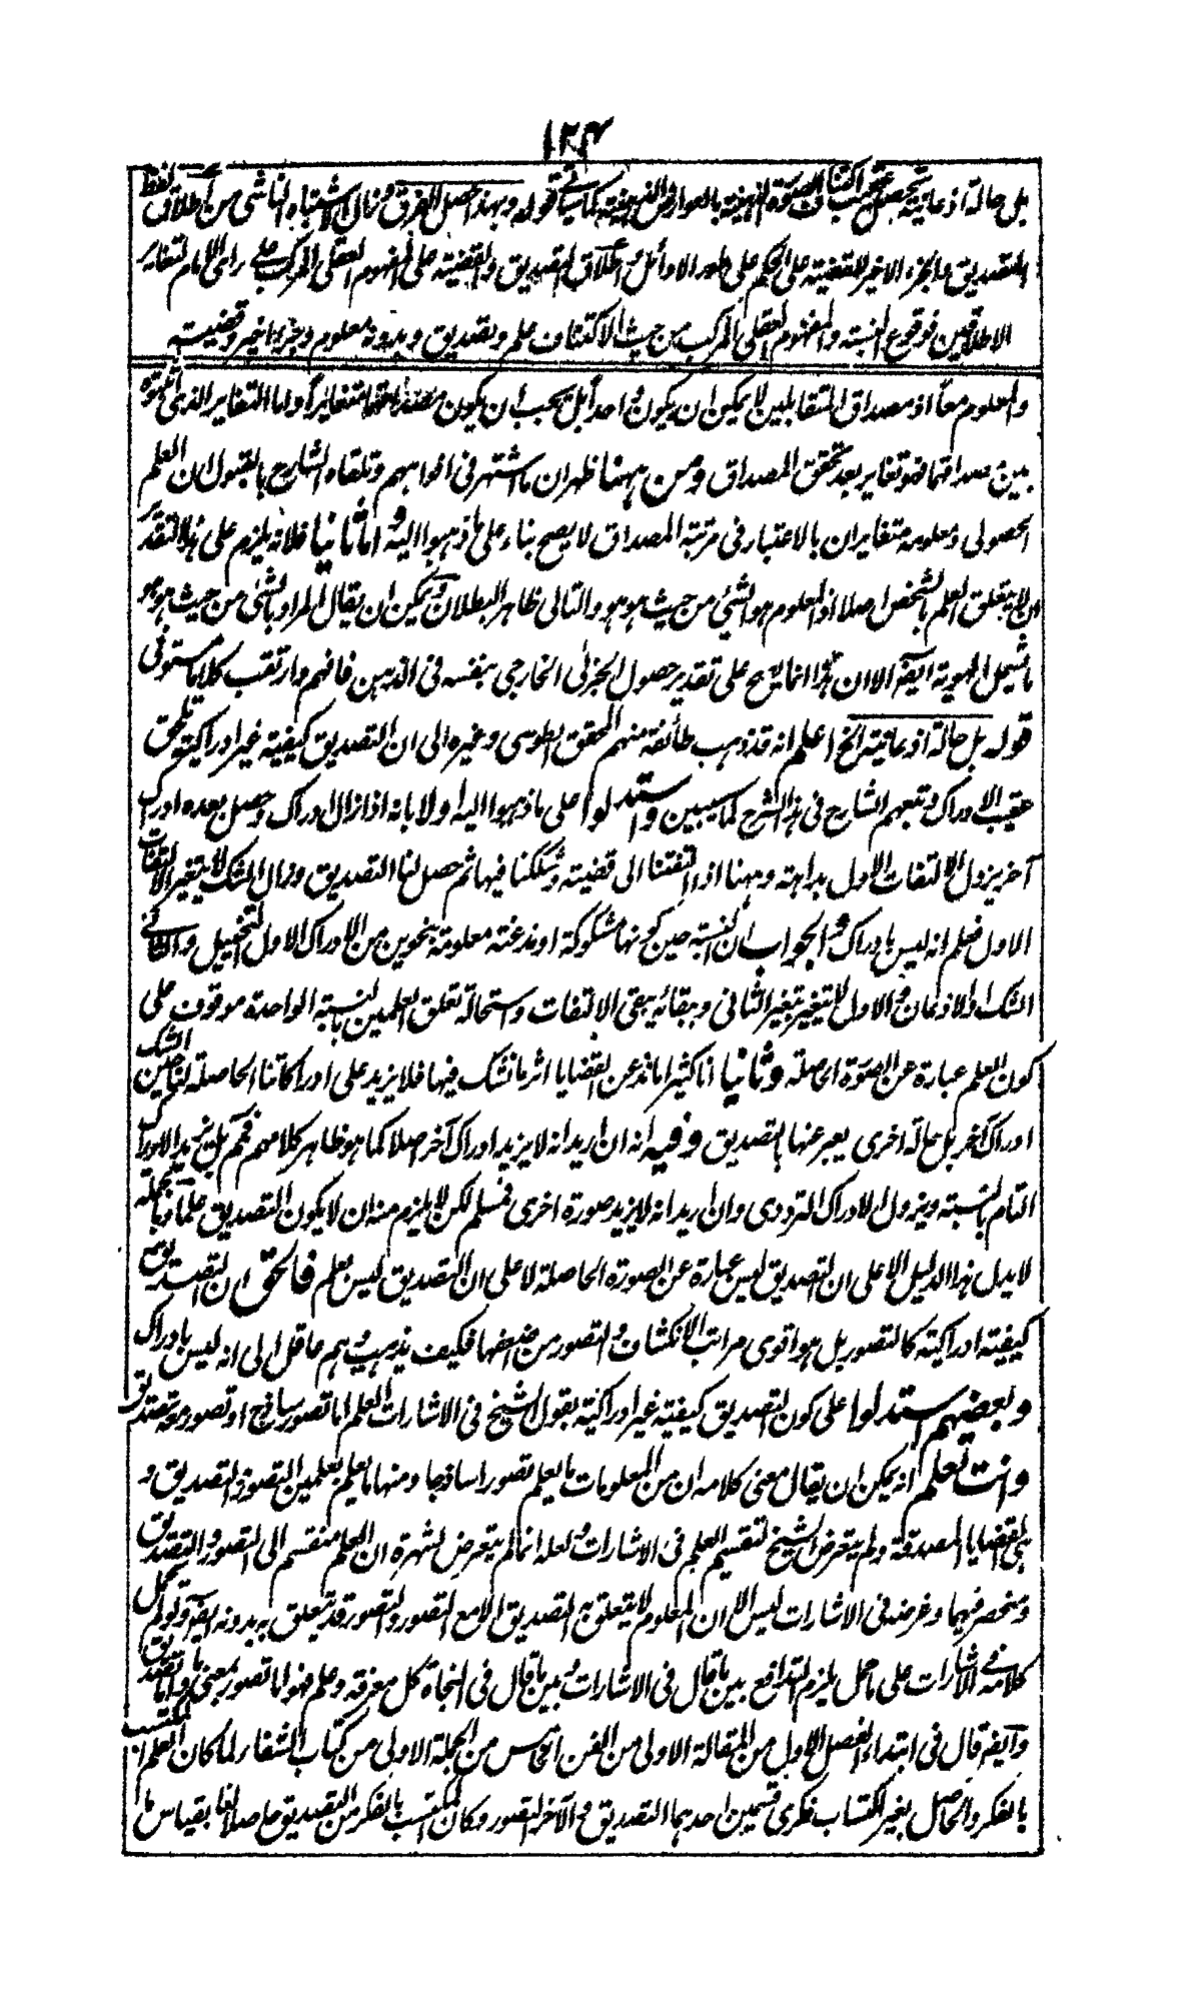 ١٢٤
بل حالة اذعانية تحصل عقيب اكتناف الصورة الذهنية بالعوارض الذهنية كما سيأتي قوله وبهذا حصل الفرق وزال الاشتباه الناشى من اطلاق لفظ
التصديق والجزء الاخير للقضية على الحكم على طور الاوائل واطلاق التصديق والقضية على المفهوم العقلى المركب على راى الامام لتغاير
الاطلاقين فوقوع النسبة والمفهوم العقلى المركب من حيث الاكتناف علم وتصديق وبدونه معلوم وجزء اخير وقضية
والمعلوم معا اذ مصداق المتقابلين لا يمكن ان يكون واحدا بل يجب ان يكون مصداقهما متغايرا واما التغاير الذى اثبتوه
بين مصداقهما فهو تغاير بعد تحقق المصداق ومن ههنا ظهر ان ما اشتهر فى افواههم وتلقاه الشارح بالقبول ان العلم
الحصولى ومعلومه متغايران بالاعتبار فى مرتبة المصداق لا يصح بناء على ما ذهبوا اليه واما ثانيا فلانه يلزم على هذا التقدير
ان لا يتعلق العلم بالشخص اصلا اذ المعلوم هو الشئ من حيث هو هو والتالى ظاهر البطلان ويمكن ان يقال المراد بالشئ من حيث هو هو
ما يشمل الهوية ايضا الا ان هذا انما يصح على تقدير حصول الجزئى الخارجى بنفسه فى الذهن فافهم وارتقب كلاما مستوفى
قوله بل حالة اذعانية الخ اعلم انه قد ذهب طائفة منهم المحقق الطوسى وغيره الى ان التصديق كيفية غير ادراكية تلحق
عقيب الادراك وتبعهم الشارح فى هذا الشرح كما سيبين واستدلوا على ما ذهبوا اليه اولا بانه اذا زال ادراك وحصل بعده ادراك
آخر يزول الالتفات الاول بداهة وههنا اذا التفتنا الى قضية وشككنا فيها ثم حصل لنا التصديق وزال الشك لا يتغير الالتفات
الاول فعلم انه ليس بادراك والجواب ان النسبة حين كونها مشكوكة او مذعنة معلومة بنحوين من الادراك الاول التخييل والثانى
الشك او الاذعان والاول لا يتغير بتغير الثانى وببقائه يبقى الالتفات واستحالة تعلق العلمين بالنسبة الواحدة موقوف على
كون العلم عبارة عن الصورة الحاصلة وثانيا انا كثيرا ما نذعن القضايا اثر ما نشك فيها فلا يزيد على ادراكاتنا الحاصلة لنا حين الشك
ادراك آخر بل حالة اخرى يعبر عنها بالتصديق وفيه انه ان اريد انه لا يزيد ادراك آخر اصلا كما هو ظاهر كلامهم فمم بل يزيد الادراك
التام بالنسبة ويزول الادراك الترددى وان اريد انه لا يزيد صورة اخرى فمسلم لكن لا يلزم منه ان لا يكون التصديق علما وبالجملة
لا يدل هذا الدليل الا على ان التصديق ليس عبارة عن الصورة الحاصلة لا على ان التصديق ليس بعلم فالحق ان التصديق
كيفية ادراكية كالتصور بل هو اقوى مراتب الانكشاف والتصور من اضعفها فكيف يذهب وهم عاقل الى انه ليس بادراك
وبعضهم استدلوا على كون التصديق كيفية غير ادراكية بقول الشيخ فى الاشارات العلم اما تصور ساذج او تصور معه تصديق
وانت تعلم انه يمكن ان يقال معنى كلامه ان من المعلومات ما يعلم تصورا ساذجا ومنها ما يعلم بعلمين التصور والتصديق و
هى القضايا المصدقة ولم يتعرض الشيخ لتقسيم العلم فى الاشارات ولعله انما لم يتعرض لشهرة ان العلم منقسم الى التصور والتصديق
ومنحصر فيهما وغرضه فى الاشارات ليس الا ان المعلوم لا يتعلق به التصديق الا مع التصور والتصور قد يتعلق به بدونه ايضا ولو لم يحمل
كلامه فى الاشارات على ما حمل يلزم التدافع بين ما قال فى الاشارات وبين ما قال فى النجاة كل معرفة وعلم فهو اما تصور بمعنى ما واما تصديق
وايضا قال فى ابتداء الفصل الاول من المقالة الاولى من الفن الخامس من الجملة الاولى من كتاب الشفاء لما كان العلم المكتسب
بالفكر والحاصل بغير اكتساب فكرى قسمين احدهما التصديق والآخر التصور وكان المكتسب بالفكر من التصديق حاصلا لنا بقياس ما